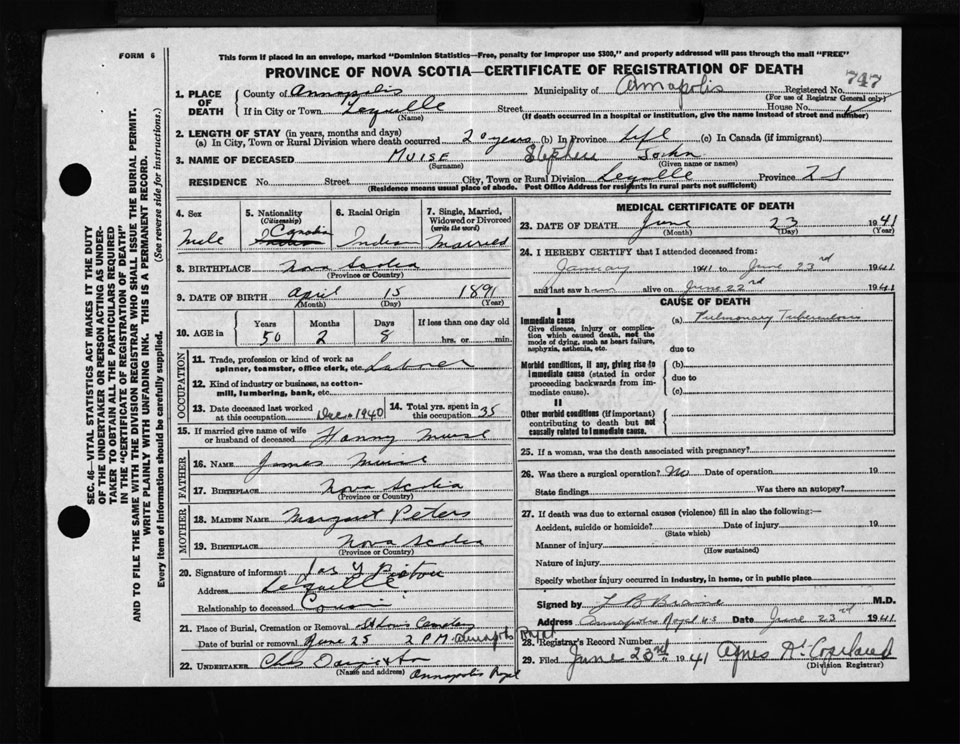 FORM 6
This form if placed in an envelope, marked "Dominion Statistics—Free, penalty for improper use $300," and properly addressed will pass through the mail "FREE"
PROVINCE OF NOVA SCOTIA—CERTIFICATE OF REGISTRATION OF DEATH
747
1. PLACE OF DEATH County of Annapolis Municipality of Annapolis Registered No.
(For use of Registrar General only)
If in City or Town Street House No.
(Name) (If death occurred in a hospital or institution, give the name instead of street and number)
2. LENGTH OF STAY (in years, months and days)
(a) In City, Town or Rural Division where death occurred 20 years (b) In Province life (c) In Canada (if immigrant)
3. NAME OF DECEASED Muise Stephen John
(Surname) (Given name or names)
RESIDENCE No. Street City, Town or Rural Division Province NS
(Residence means usual place of abode. Post Office Address for residents in rural parts not sufficient)
4. Sex 5. Nationality (Citizenship) 6. Racial Origin 7. Single, Married, Widowed or Divorced (write the word)
Male Canadian Indian Indian Married
8. BIRTHPLACE Nova Scotia
(Province or Country)
9. DATE OF BIRTH April 15 1891
(Month) (Day) (Year)
10. AGE in Years Months Days If less than one day old
50 2 8 hrs. or min.
OCCUPATION
11. Trade, profession or kind of work as spinner, teamster, office clerk, etc. Laborer
12. Kind of industry or business, as cotton-mill, lumbering, bank, etc.
13. Date deceased last worked at this occupation Dec 1940 14. Total yrs. spent in this occupation 35
15. If married give name of wife or husband of deceased Muise
FATHER
16. NAME James Muise
17. BIRTHPLACE Nova Scotia
(Province or Country)
MOTHER
18. MAIDEN NAME Margaret Peters
19. BIRTHPLACE Nova Scotia
(Province or Country)
20. Signature of informant Jas Y Pictou
Address Lequille
Relationship to deceased Cousin
21. Place of Burial, Cremation or Removal St Louis Cemetery
Date of burial or removal June 25 2 P.M. Annapolis Royal
22. UNDERTAKER Chas
(Name and address) Annapolis Royal
MEDICAL CERTIFICATE OF DEATH
23. DATE OF DEATH June 23 1941
(Month) (Day) (Year)
24. I HEREBY CERTIFY that I attended deceased from:
January 1941 to June 23rd 1941
and last saw him alive on June 22nd 1941
CAUSE OF DEATH
I
Immediate cause (a) Pulmonary Tuberculosis
Give disease, injury or complication which caused death, not the mode of dying, such as heart failure, asphyxia, asthenia, etc.
due to
Morbid conditions, if any, giving rise to immediate cause (stated in order proceeding backwards from immediate cause).
(b)
due to
(c)
II
Other morbid conditions (if important) contributing to death but not causally related to immediate cause.
25. If a woman, was the death associated with pregnancy?
26. Was there a surgical operation? No Date of operation 19
State findings Was there an autopsy?
27. If death was due to external causes (violence) fill in also the following:—
Accident, suicide or homicide? Date of injury 19
(State which)
Manner of injury
(How sustained)
Nature of injury
Specify whether injury occurred in industry, in home, or in public place
Signed by L B Braine M.D.
Address Annapolis Royal N.S Date June 23rd 1941
28. Registrar's Record Number
29. Filed June 23rd 1941 Agnes
(Division Registrar)
SEC. 46—VITAL STATISTICS ACT MAKES IT THE DUTY
OF THE UNDERTAKER OR PERSON ACTING AS UNDER-
TAKER TO OBTAIN ALL THE PARTICULARS REQUIRED
IN THE "CERTIFICATE OF REGISTRATION OF DEATH"
AND TO FILE THE SAME WITH THE DIVISION REGISTRAR WHO SHALL ISSUE THE BURIAL PERMIT.
WRITE PLAINLY WITH UNFADING INK. THIS IS A PERMANENT RECORD.
Every item of information should be carefully supplied. (See reverse side for instructions.)